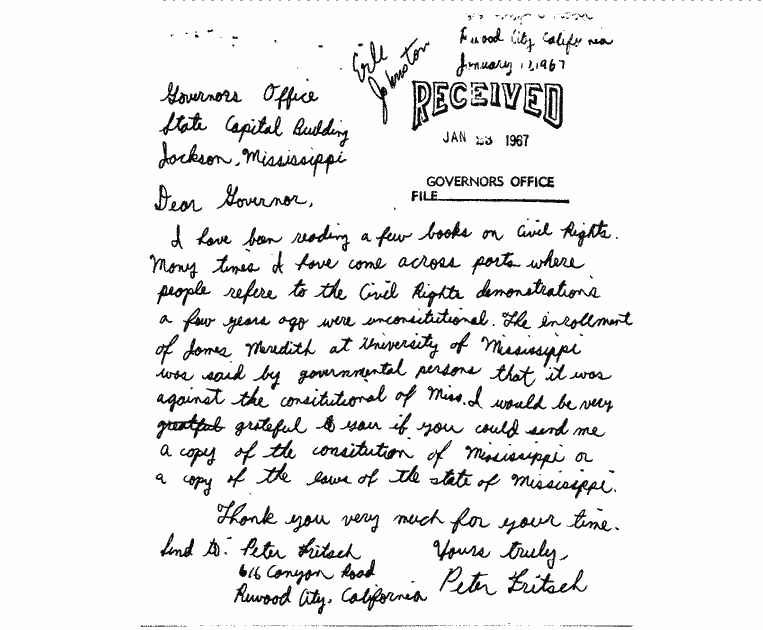 Rewood City, California
January 1, 1967
Erle
Johnston
RECEIVED
JAN 23 1967
GOVERNORS OFFICE
FILE
Governors Office
State Capital Building
Jackson, Mississippi
Dear Governor,
I have been reading a few books on Civil Rights.
Many times I have come across parts where
people refere to the Civil Rights demonstrations
a few years ago were unconsitutional. The enrollment
of James Meredith at University of Mississippi
was said by governmental persons that it was
against the consitutional of Miss. I would be very
greatful grateful to you if you could send me
a copy of the consitution of Mississippi or
a copy of the laws of the state of Mississippi.
Thank you very much for your time.
Send to: Peter Fritsch
Yours truly,
616 Canyon Road
Rewood City, California
Peter Fritsch